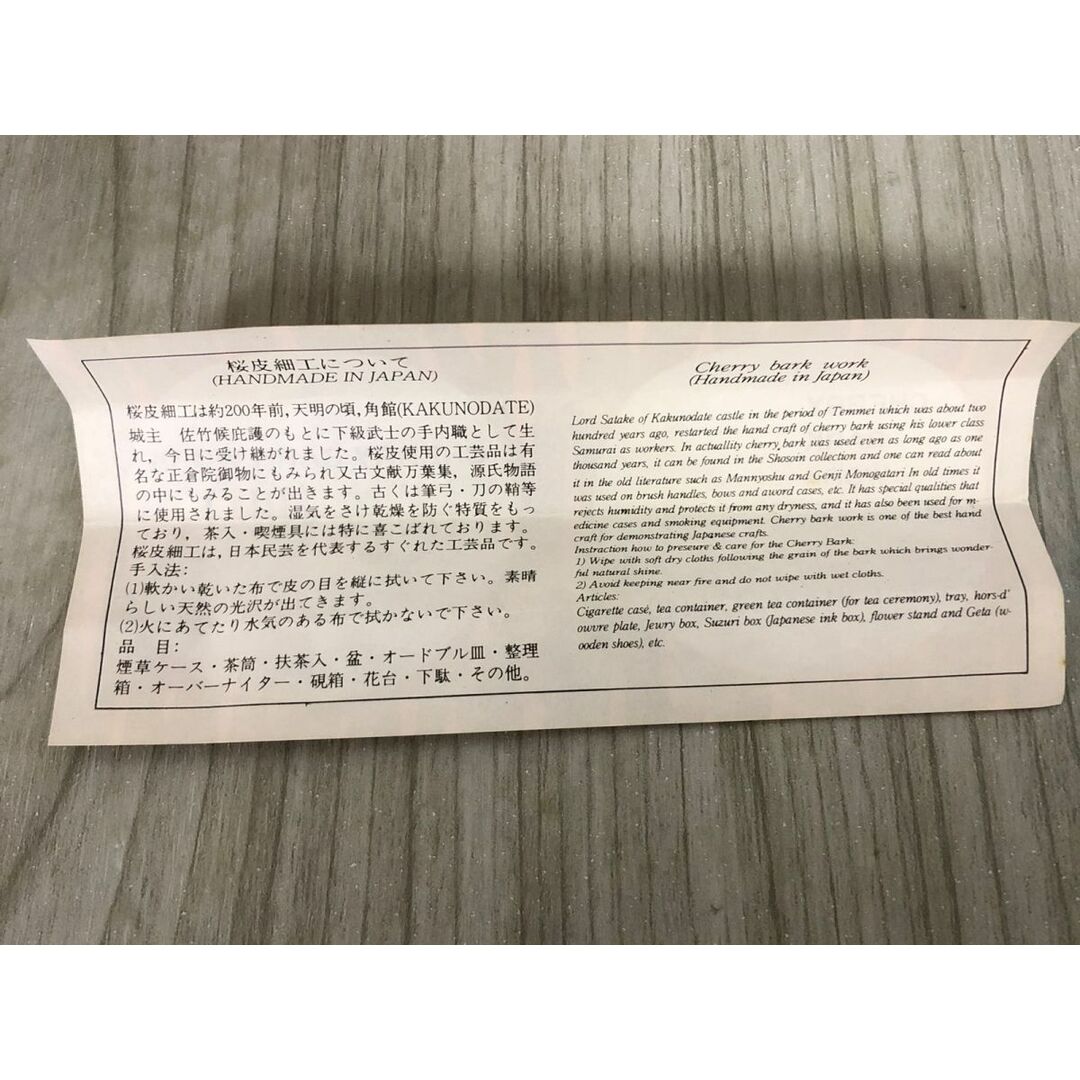 桜皮細工について
(HANDMADE IN JAPAN)
桜皮細工は約200年前,天明の頃,角館(KAKUNODATE)
城主 佐竹候庇護のもとに下級武士の手内職として生
れ,今日に受け継がれました。桜皮使用の工芸品は有
名な正倉院御物にもみられ又古文献万葉集,源氏物語
の中にもみることが出きます。古くは筆弓・刀の鞘等
に使用されました。湿気をさけ乾燥を防ぐ特質をもっ
ており,茶入・喫煙具には特に喜こばれております。
桜皮細工は,日本民芸を代表するすぐれた工芸品です。
手入法:
(1)軟かい乾いた布で皮の目を縦に拭いて下さい。素晴
らしい天然の光沢が出てきます。
(2)火にあてたり水気のある布で拭かないで下さい。
品 目:
煙草ケース・茶筒・扶茶入・盆・オードブル皿・整理
箱・オーバーナイター・硯箱・花台・下駄・その他。
Cherry bark work
(Handmade in Japan)
Lord Satake of Kakunodate castle in the period of Temmei which was about two
hundred years ago, restarted the hand craft of cherry bark using his lower class
Samurai as workers. In actuallity cherry bark was used even as long ago as one
thousand years, it can be found in the Shosoin collection and one can read about
it in the old literature such as Mannyoshu and Genji Monogatari In old times it
was used on brush handles, bows and aword cases, etc. It has special qualities that
rejects humidity and protects it from any dryness, and it has also been used for m-
edicine cases and smoking equipment. Cherry bark work is one of the best hand
craft for demonstrating Japanese crafts.
Instraction how to preseure & care for the Cherry Bark:
1) Wipe with soft dry cloths following the grain of the bark which brings wonder-
ful natural shine.
2) Avoid keeping near fire and do not wipe with wet cloths.
Articles:
Cigarette casé, tea container, green tea container (for tea ceremony), tray, hors-d'
owuvre plate, Jewry box, Suzuri box (Japanese ink box), flower stand and Geta (w-
ooden shoes), etc.